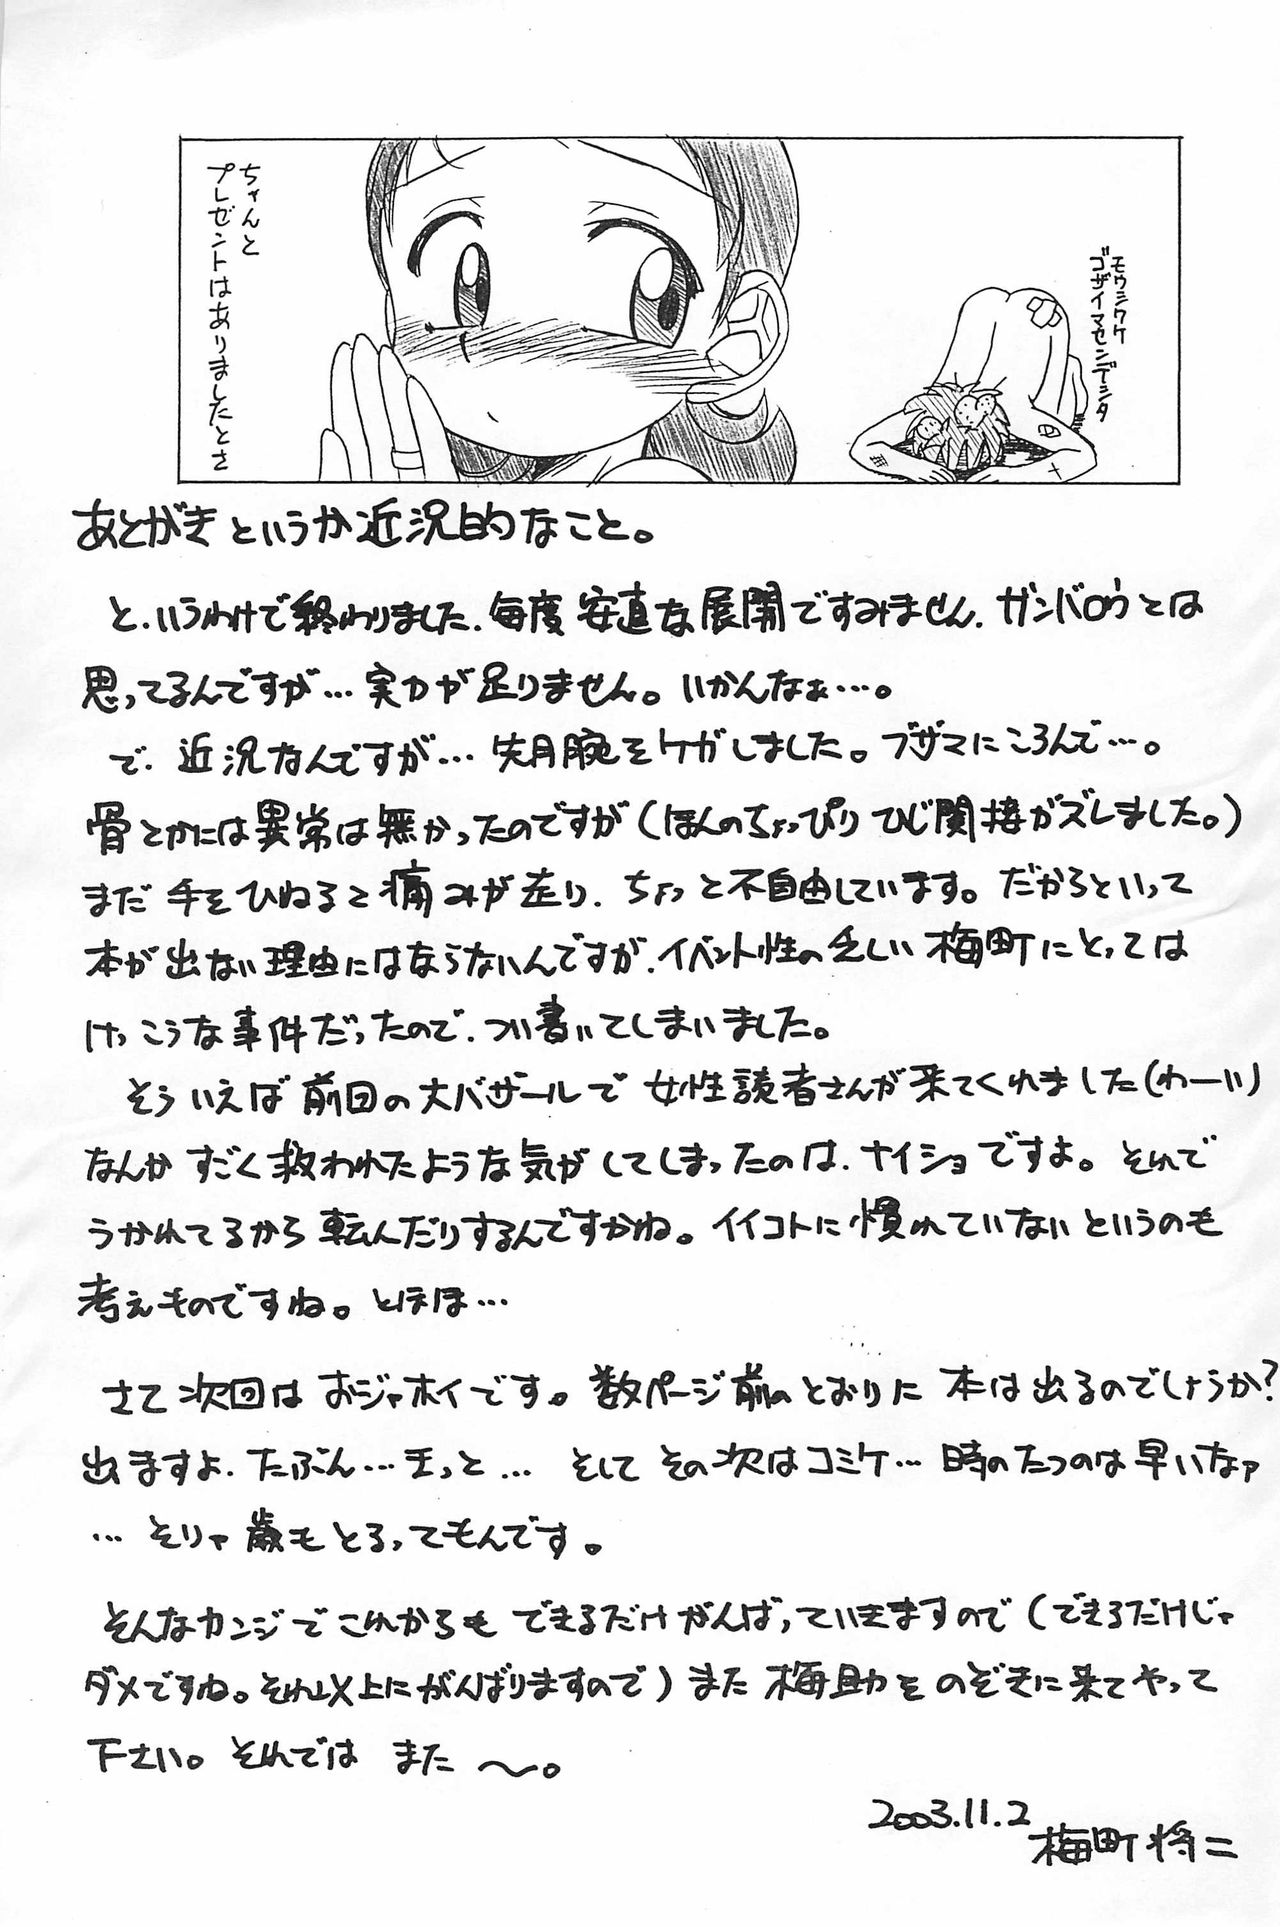 モウシワケ
ゴザイマセンデシタ
ちゃんと
プレゼントはありましたとさ
あとがきというか近況的なこと。
と、いうわけで終わりました。毎度安直な展開ですみません。ガンバロウとは
思ってるんですが…実力が足りません。いかんなぁ…。
で、近況なんですが…先月腕をケガしました。ブザマにころんで…。
骨とかには異常は無かったのですが(ほんのちょっぴりひじ関接がズレました。)
まだ手をひねると痛みが走り、ちょっと不自由しています。だからといって
本が出ない理由にはならないんですが、イベント性の乏しい梅町にとっては
けっこうな事件だったので、つい書いてしまいました。
そういえば前回の大バザールで女性読者さんが来てくれました(わーい)
なんかすごく救われたような気がしてしまったのは、ナイショですよ。それで
うかれてるから転んだりするんですかね。イイコトに慣れていないというのも
考えものですね。とほほ…
さて次回はおジャホイです。数ページ前のとおりに本は出るのでしょうか?
出ますよ、たぶん…きっと…そしてその次はコミケ…時のたつのは早いなァ
…そりゃ歳もとるってもんです。
そんなカンジでこれからもできるだけがんばっていきますので(できるだけじゃ
ダメですね。それ以上にがんばりますので)また梅助をのぞきに来てやって
下さい。それではまた〜。
2003.11.2
梅町将二